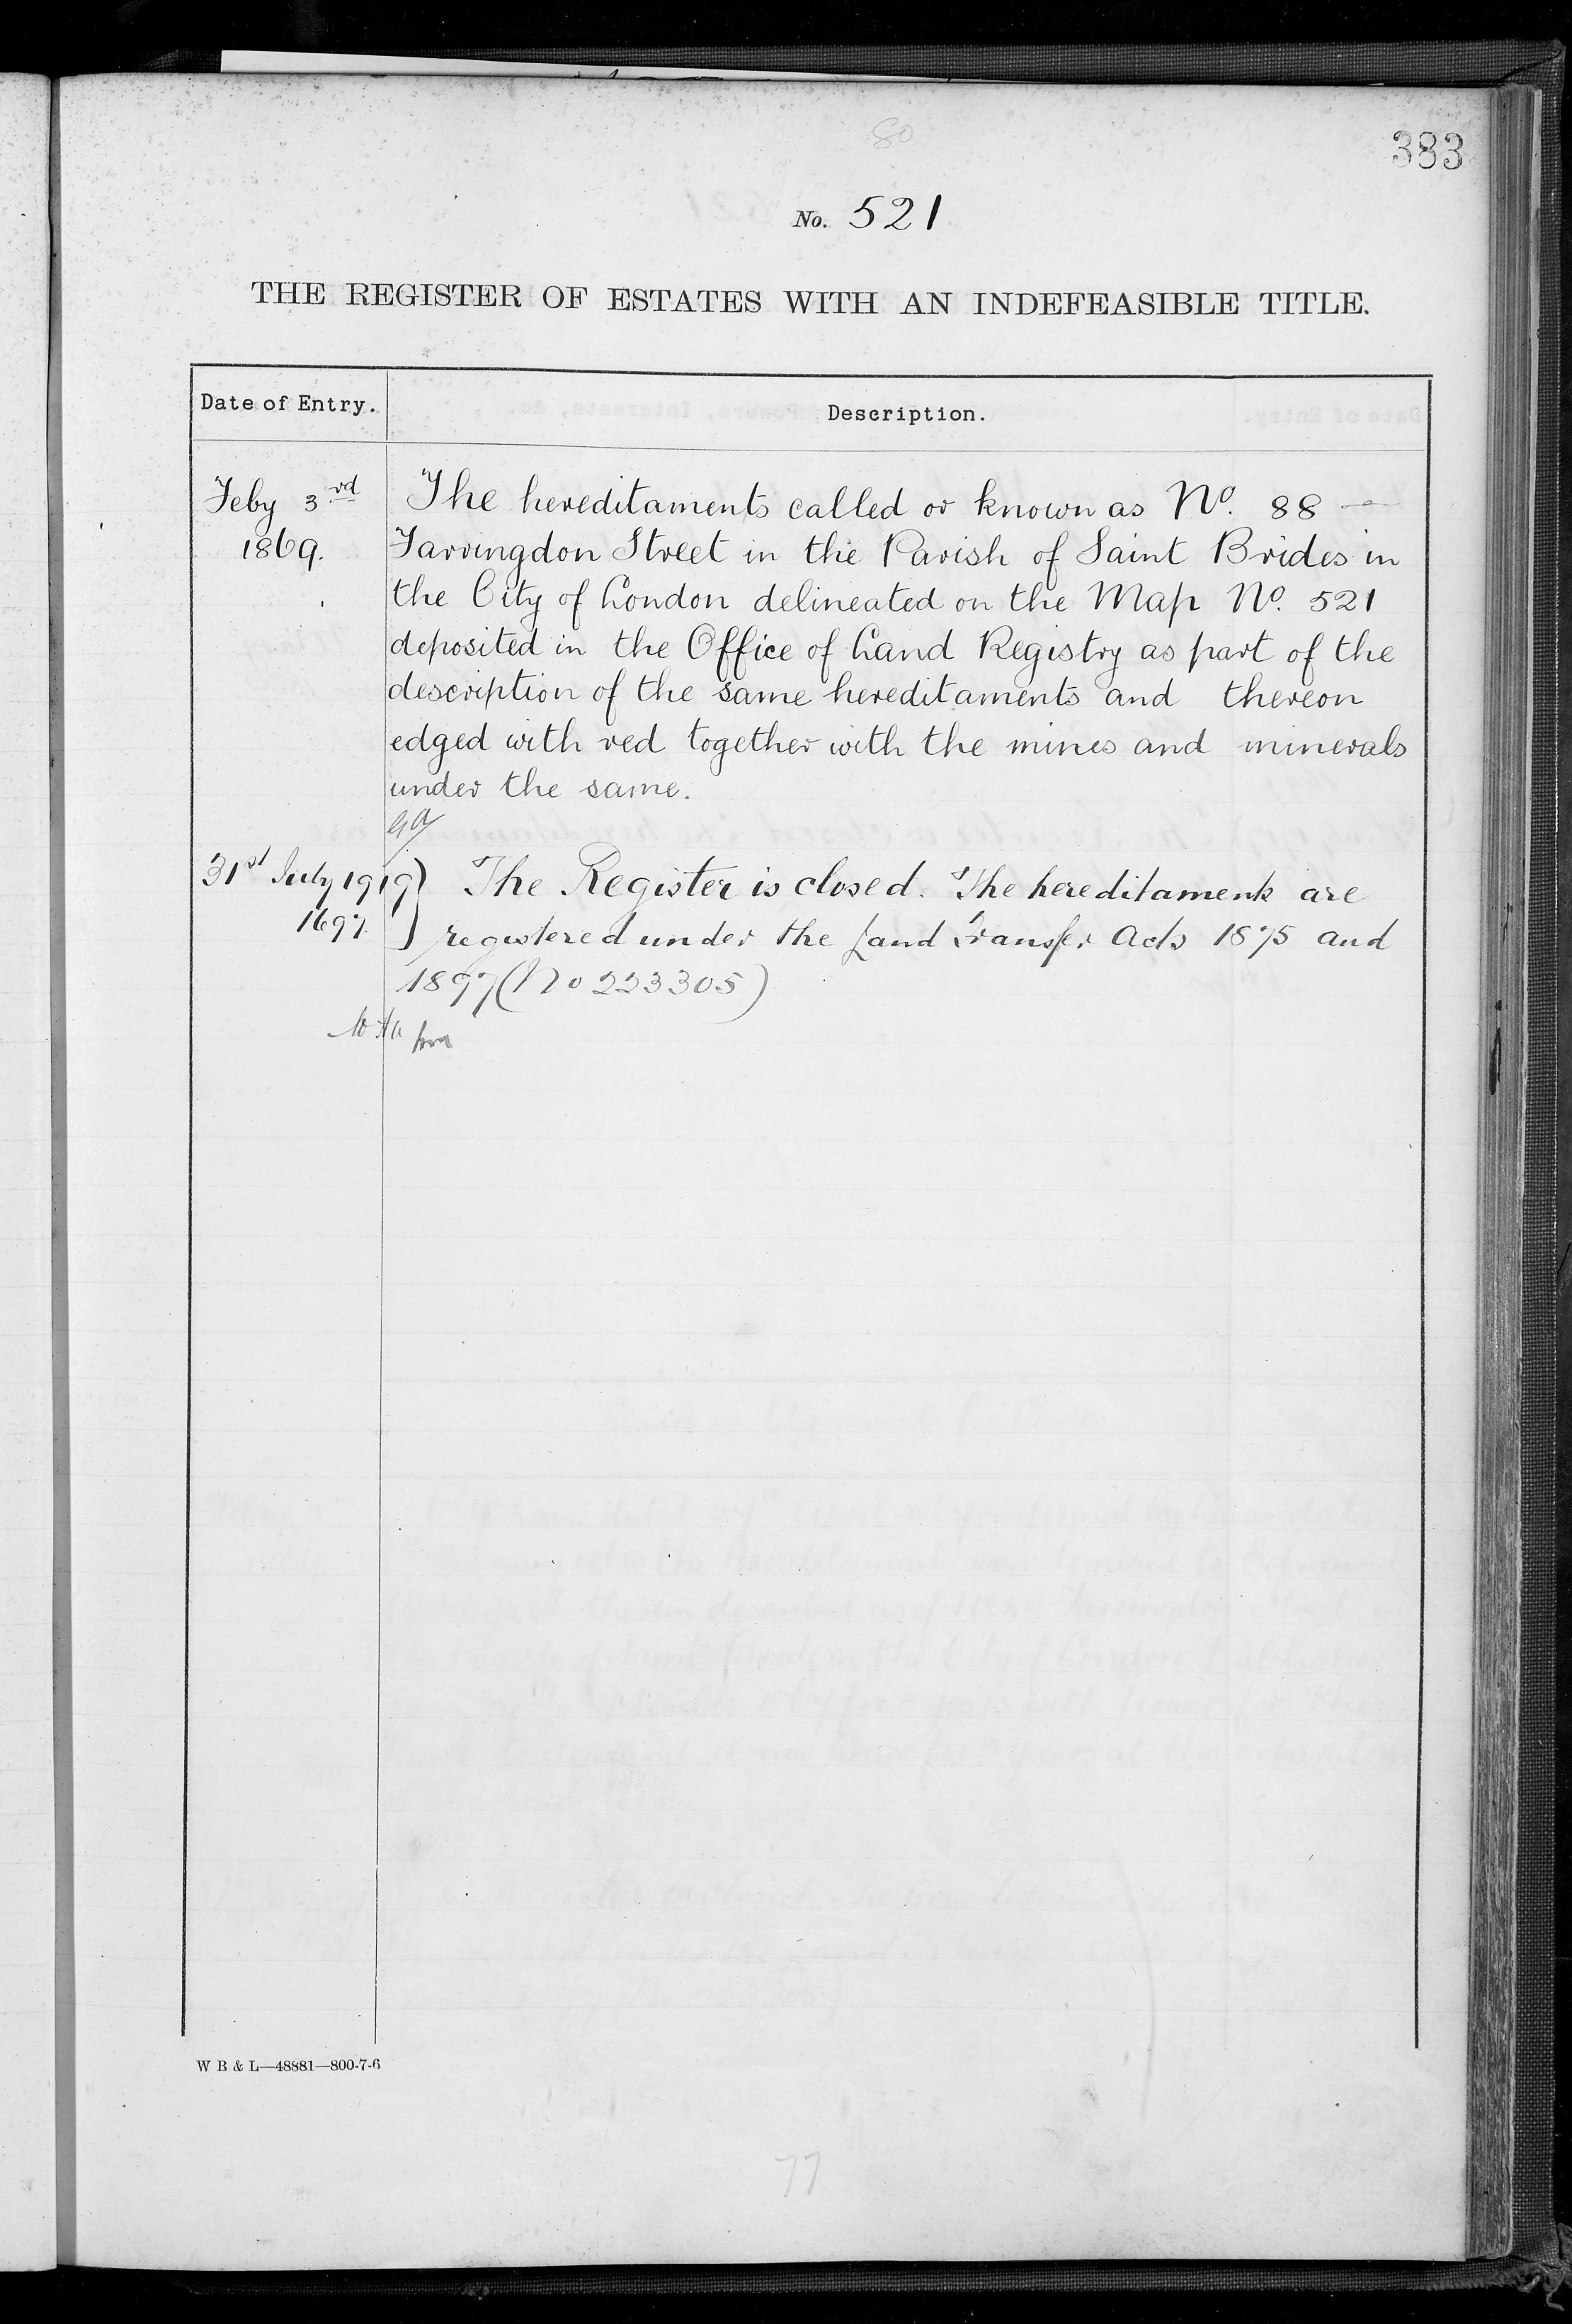 80
383
No. 521
THE REGISTER OF ESTATES WITH AN INDEFEASIBLE TITLE.
Date of Entry.
Description.
Feby 3rd
1869.
The hereditaments called or known as No. 88 -
Farringdon Street in the Parish of Saint Brides in
the City of London delineated on the Map No. 521
deposited in the Office of Land Registry as part of the
description of the same hereditaments and thereon
edged with red together with the mines and minerals
under the same.
31st July 1919
1697.
The Register is closed. The hereditaments are
registered under the Land Transfer Acts 1875 and
1897 (No 223305)
W B & L—48881—800-7-6
77